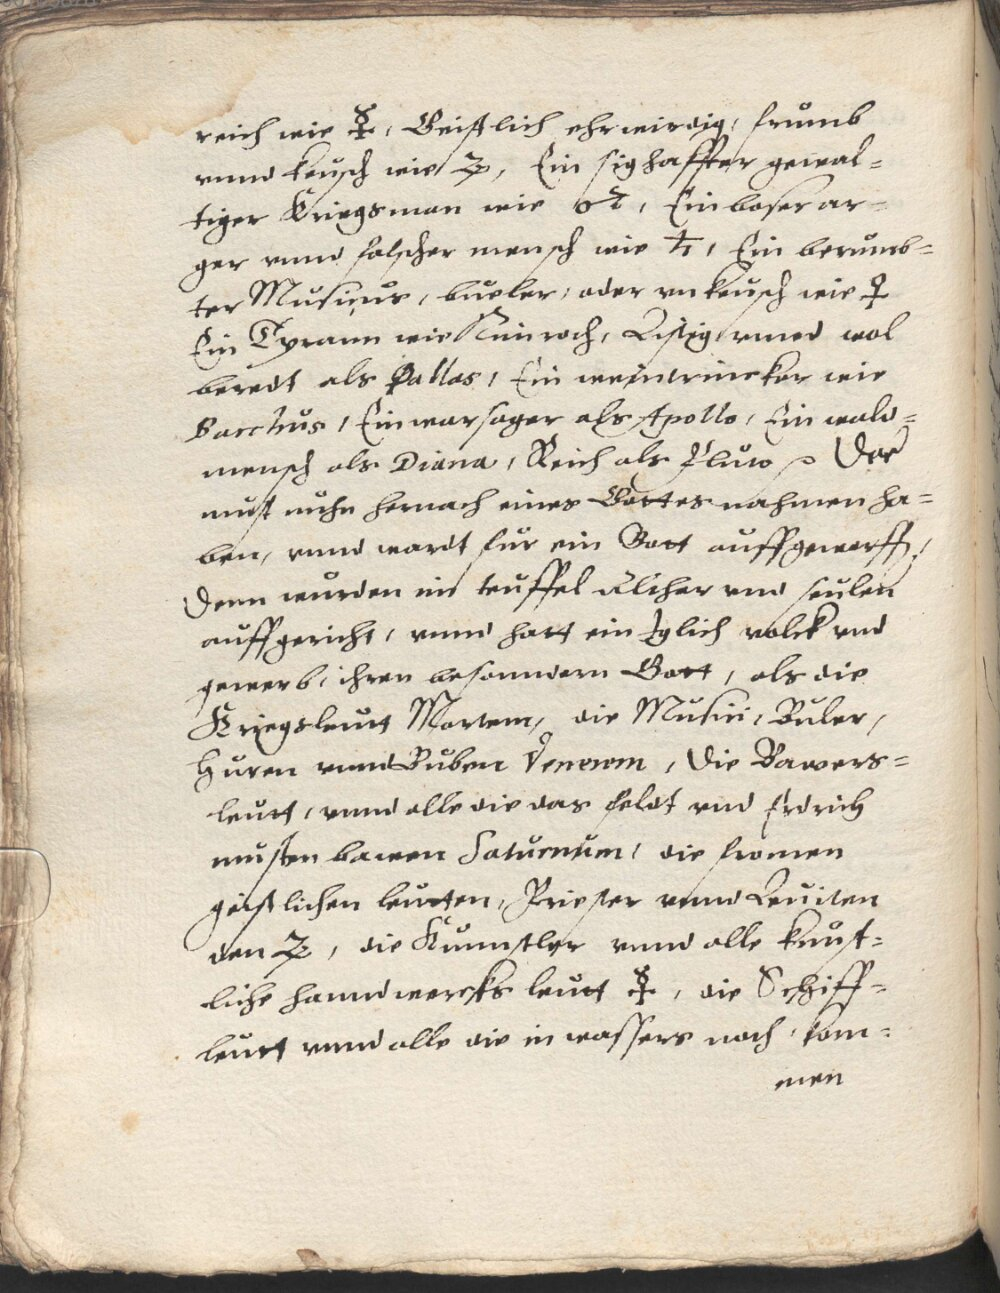 reich wie ☿, Geistlich ehrwirdig, frumb
vnnd keusch wie ♃, Ein sighaffter gewal=
tiger Kriegsman wie ♂, Ein boser ar=
ger vnnd falscher mensch wie ♄, Ein berumb=
ter Musicus, bueler, oder vnkeusch wie ♀
Ein Tyrann wie Nimroth, Listig vnnd wol
beredt als Pallas, Ein weintrincker wie
Bacchus, Ein warsager als Apollo, Ein wald=
mensch als Diana, Reich als Pluto Der
must nuhn hernach eines Gottes nahmen ha=
ben, vnnd wardt für ein Gott auffgeworffen,
Denn wurden im teuffel Alther vnd seulen
auffgericht, vnnd hatt ein Iglich volck vnd
gewerb, ihren besonndern Gott, als die
Kriegsleutt Martem, die Musici, Buler,
Huren vnnd Buben Venerem, Die Bawers=
leutt, vnnd alle die das feldt vnd Erdrich
musten bawen Saturnum, die fromen
geistlichen leutten, Priester vnnd Leuiten
den ♃, die Kunnstler vnnd alle kunst=
liche hanndwercks leutt ☿, die Schiff=
leutt vnnd alle die in wassers noth, kom=
men